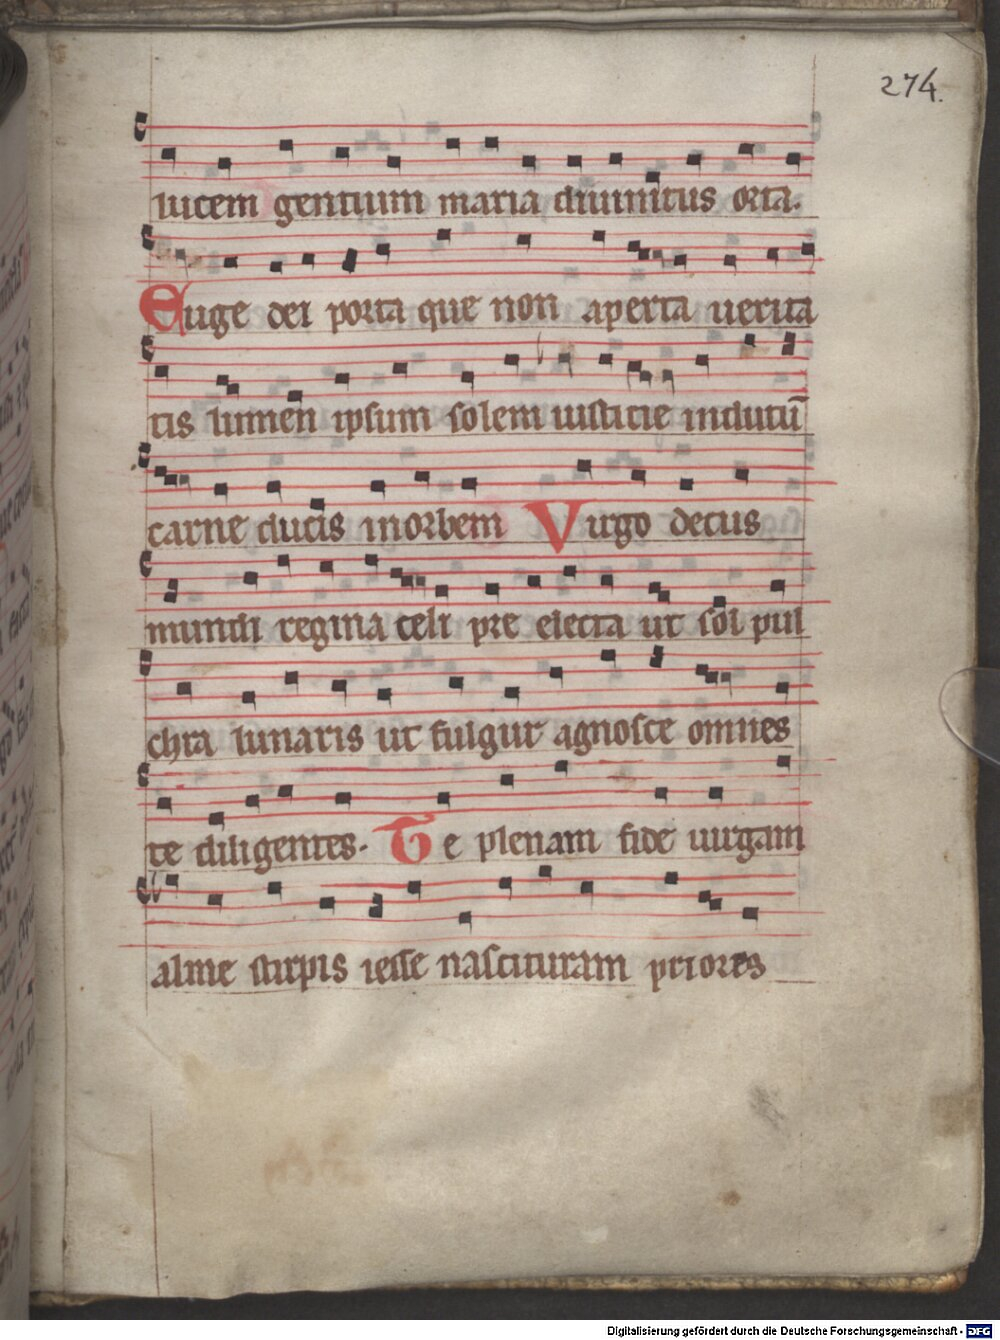 274.
lucem gentium maria diuinitus orta.
Euge dei porta que non aperta uerita
tis lumen ipsum solem iusticie indutū
carne ducis inorbem Virgo decus
mundi regina celi pre electa ut sol pul
chra lunaris ut fulgur agnosce omnes
te diligentes. Te plenam fide uirgam
alme stirpis iesse nascituram priores
Digitalisierung gefördert durch die Deutsche Forschungsgemeinschaft - DFG